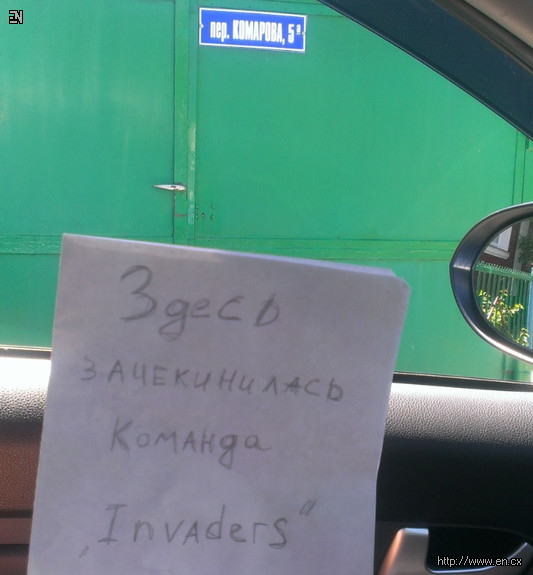 EN
пер. КОМАРОВА, 5а
Здесь
ЗАЧЕКИНИЛАСЬ
Команда
„Invaders“
http://www.en.cx